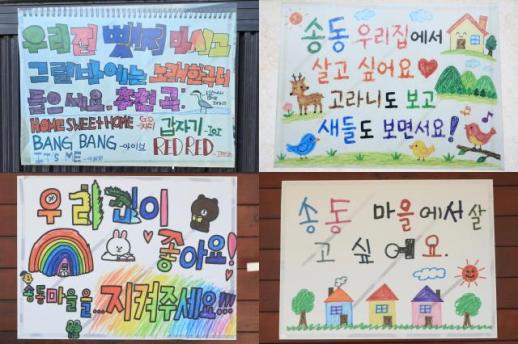 우리집 뺏지 마시고
그럴시간에는 노래나 한곡
들으세요. 추천 곡.
HOME SWEET HOME
갑자기
BANG BANG -아이브
RED RED
IT'S ME
송동 우리집에서
살고 싶어요
고라니도 보고
새들도 보면서요!
우리 집이
좋아요!
송동마을을...지켜주세요!!!
송동 마을에서 살
고 싶어요.